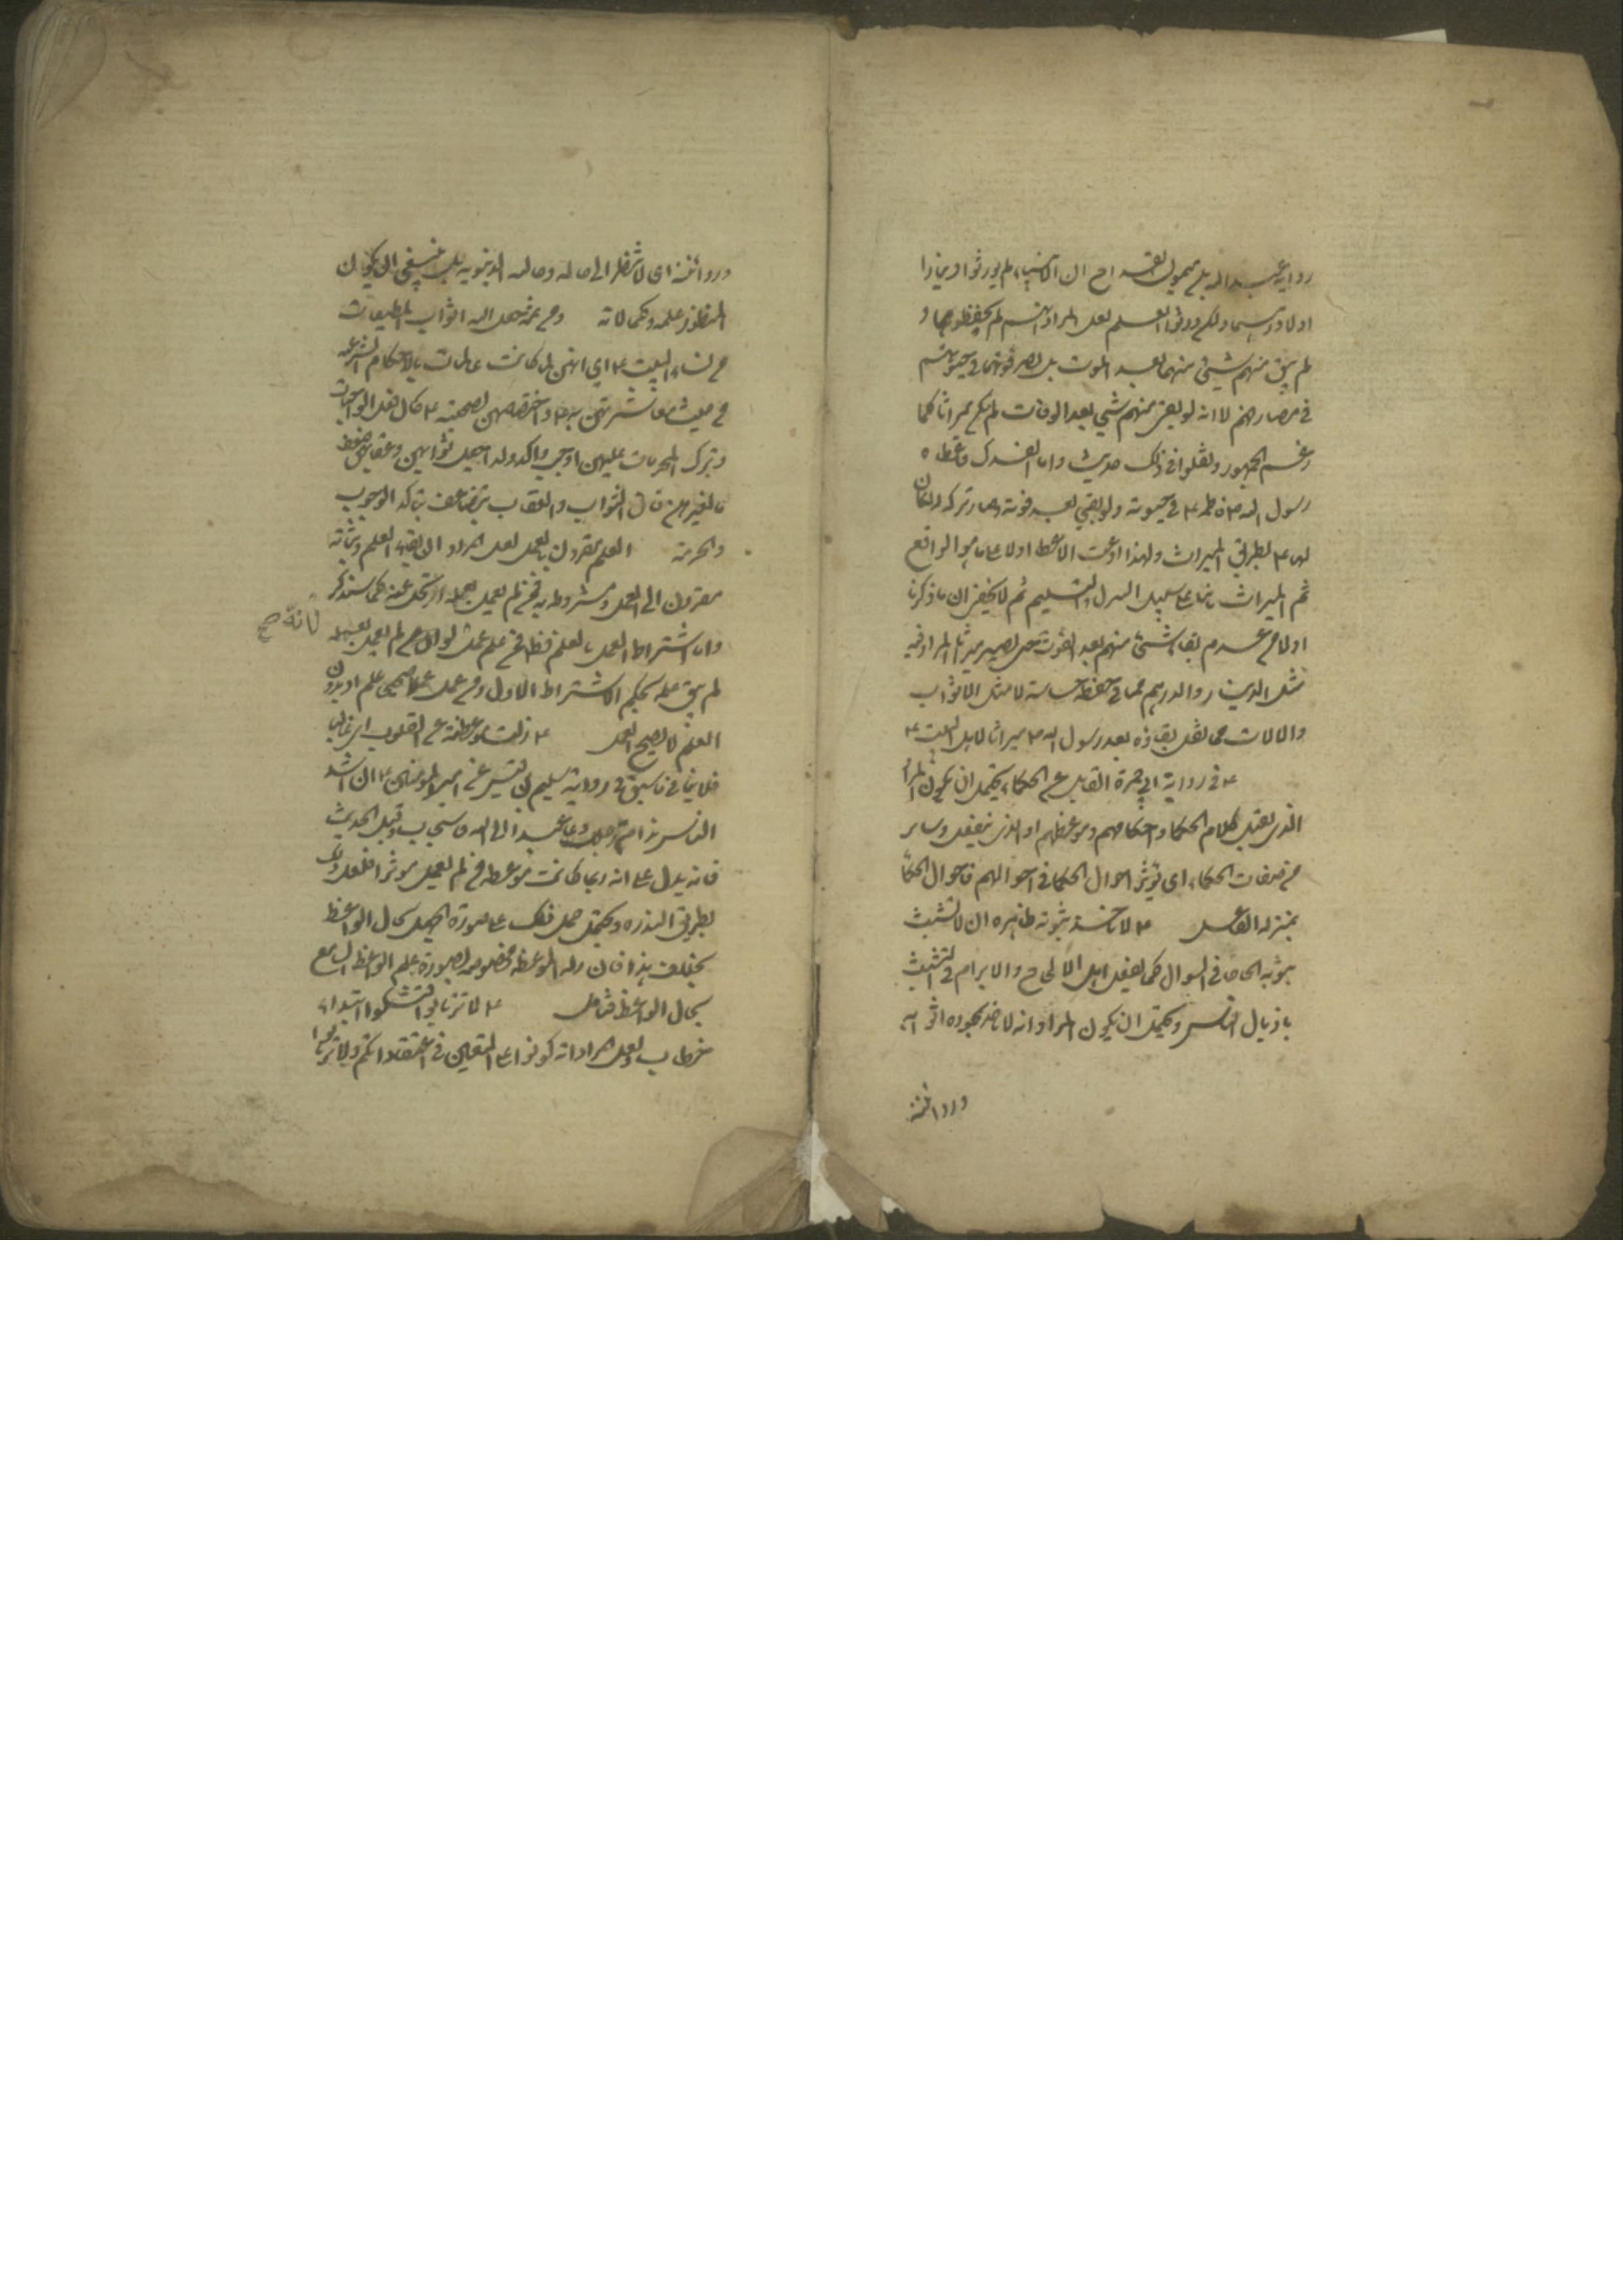 رواية عبد الله بن ميمون القداح ان الانبياء لم يورثوا دينارا
ولا درهما ولكن ورثوا العلم لعل المراد انهم لم يحفظوهما و
لم يبق منهم شيئ منهما بعد الموت بل لصرفوهما في حيوتهم
في مصارفهم لا انه لو بقي منهم شيئ بعد الوفات لم يكن ميراثا كما
زعم الجمهور ونقلوا في ذلك حديث واما الفدك فاعطاه
رسول الله ص فاطمة ع في حيوته ولو بقي بعد فوته وصار تركه لكان
لها ع بطريق الميراث ولهذا ادعت الاعطا اولا على ما هو الواقع
ثم الميراث بناء على سبيل التنزل والتسليم ثم لا يخفى ان ما ذكرنا
اولا من عدم بقاء شيئ منهم بعد الفوت حتى يصير ميراثا المراد فيه
مثل الدينار والدرهم مما في حفظه خساسة لا مثل الاثواب
والالات مما نقل بقاؤه بعد رسول الله ص ميراثا لاهل البيت ع
ع في رواية ابي حمزة القابل عن الحكماء يحتمل ان يكون المراد
الذي يقبل كلام الحكما واحكامهم وموعظهم او الذي ينفعل وساير
من صفات الحكماء اي تؤثر احوال الحكما في احوالهم فاحوال الحكما
بمنزلة الفاعل ع لا تاخذ بثوبه ظاهره ان لا تشبث
بثوبه الحاحا في السوال كما يفعل اهل الالحاح والابرام في التشبث
باذيال الناس ويحتمل ان يكون المراد انه لا تاخذ بجودة اثوابه
وردائه
وردائه اي لا تنظر الى ماله وحاله الدنيوية بل ينبغي ان يكون
المنظور علمه وكمالاته ومن ثمة جعل الله الثواب للمطيعات
من نساء النبي ص اي انهن لما كانت عالمات بالاحكام الشرعية
من حيث معاشرتهن به ص واختصاصهن بصحبته ص كان فعل الواجبات
وترك المحرمات عليهن اوجب واكد ولذا جعل ثوابهن وعقابهن ضعف
ما لغيرهن فان الثواب والعقاب يتضاعف بتاكد الوجوب
والحرمة العلم مقرون بالعمل لعل المراد ان بقاء العلم وثباته
مقرون الى العمل ومشروط به فمن لم يعمل بعلمه ارتحل عنه كما سنذكر
واما اشتراط العمل بالعلم فظاهر
لانه صح
لم يبق علمه بحكم الاشتراط الاول ومن عمل عملا صحيحا علم اذ بدون
العلم لا يصح العمل ع زلت موعظته عن القلوب اي غالبا
فلا ينافي ما سبق في رواية سليم بن قيس عن امير المومنين ع ان اشد
الناس ندامة رجل دعا عبدا الى الله فاستجاب وقبل الحديث
فانه يدل على انه ربما كانت موعظة من لم يعمل مؤثرا فلعل ذلك
بطريق الندرة ويحتمل حمل ذلك على صورة الجهل بحال الواعظ
بخلاف هذا فان زلة الموعظة مخصوصة بصورة علم الواعظ السامع
بحال الواعظ فتامل ع لا ترتابوا فتشكوا ابتداء
خطاب ولعل المراد انه كونوا على اليقين في اعتقاداتكم ولا ترتابوا